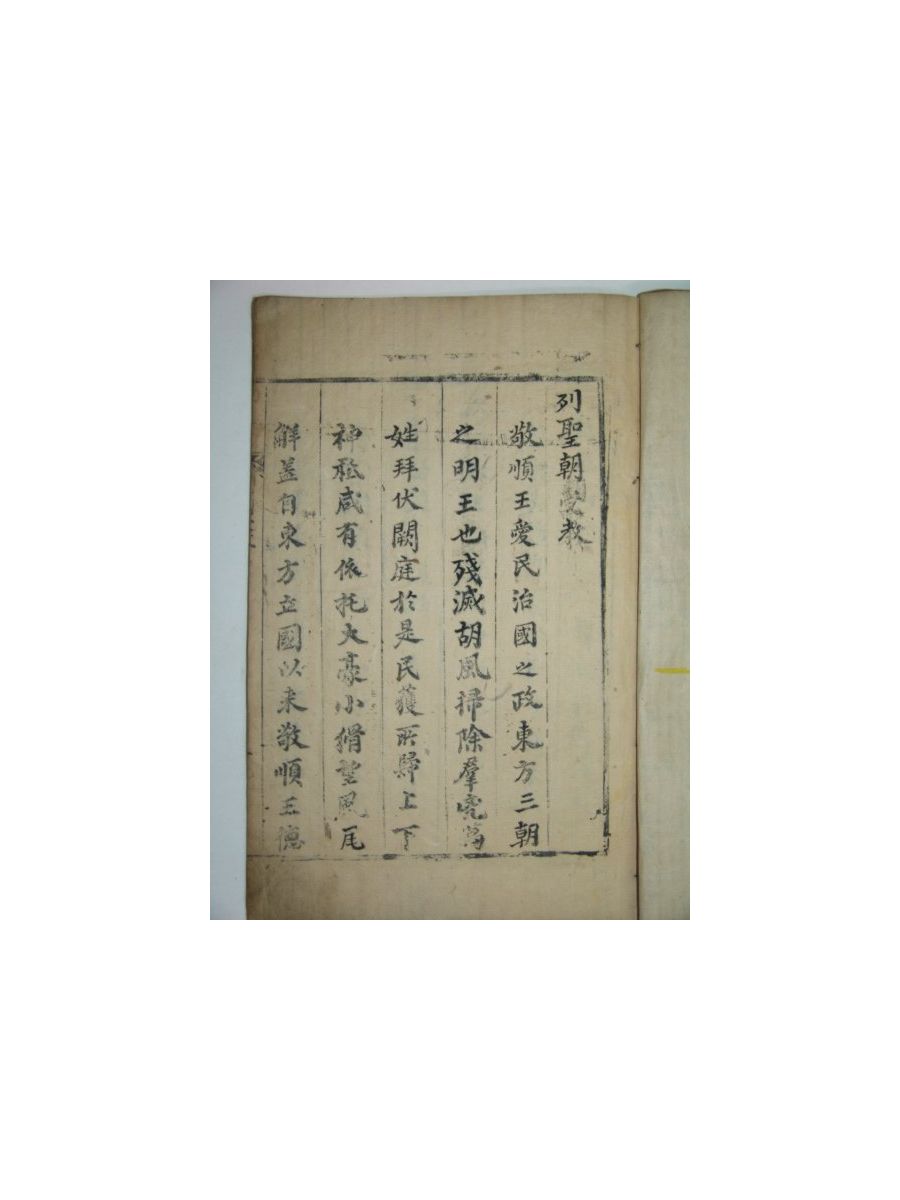 列聖朝受教
敬順王愛民治國之政東方三朝
之明王也殘滅胡風掃除羣兇萬
姓拜伏闕庭於是民獲所歸上下
神祇咸有依托大豪小猾望風瓦
解盖自東方立國以来敬順王德